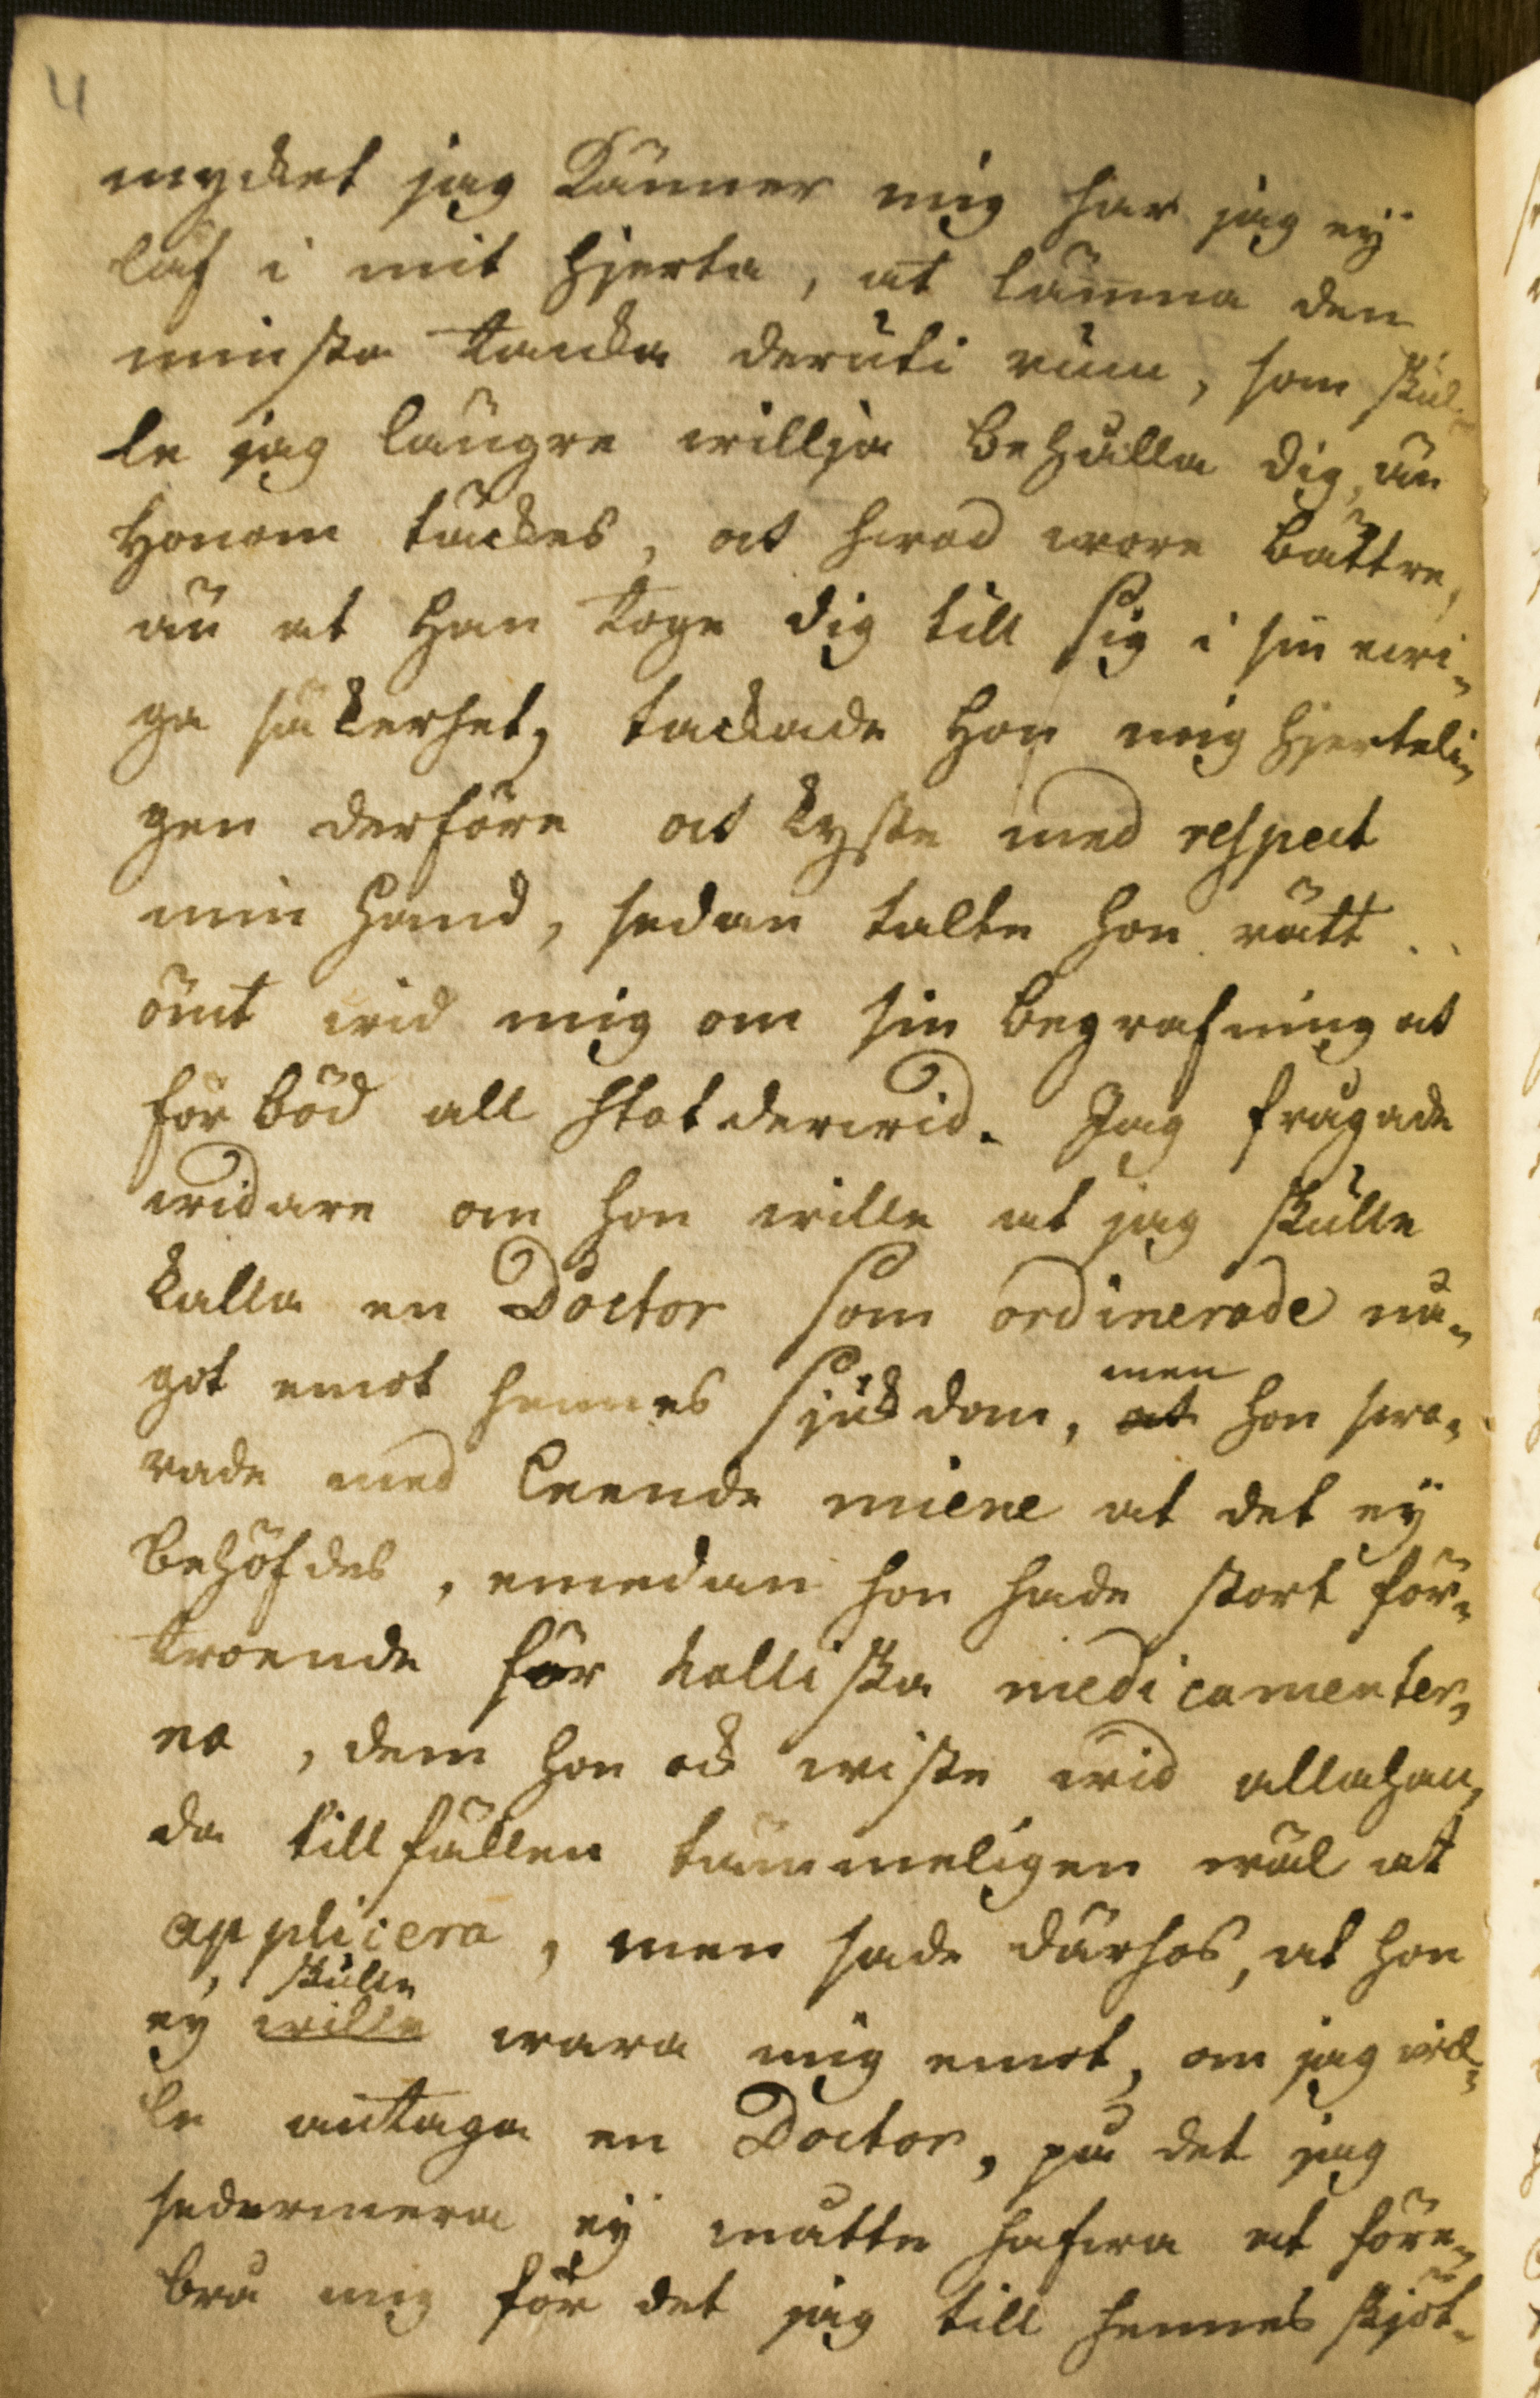 4
mycket jag känner mig har jag eÿ
låf i mit hjerta, at lämna den
minsta tancka deruti rum, som skul-
le jag längre willja behålla dig, än
Honom täckes, at hwad wore bättre,
än at Han toge dig till sig i sin ewi-
ga säkerhet, tackade hon mig hjerteli-
gen derföre at kyste med respect
min hand, sedan talte hon rätt
ömt wid mig om sin begrafning at
förböd all stat derwid. Jag frågade
widare om hon wille at jag skulle
kalla en Doctor som ordinerade nå-
got emot hennes sjukdom, at men hon swa-
rade med leende miene at det eÿ
behöfdes, emedan hon hade stort för-
troende för halliska medicamenter-
na, dem hon ock wiste wid allahan-
da tillfällen tämmeligen wäl at
applicera, men sade därhos, at hon
skulle
eÿ wille wara mig emot, om jag wil-
le antaga en Doctor, på det jag
sedermera eÿ måtte hafwa at före-
brå mig för det jag till hennes skjöt-